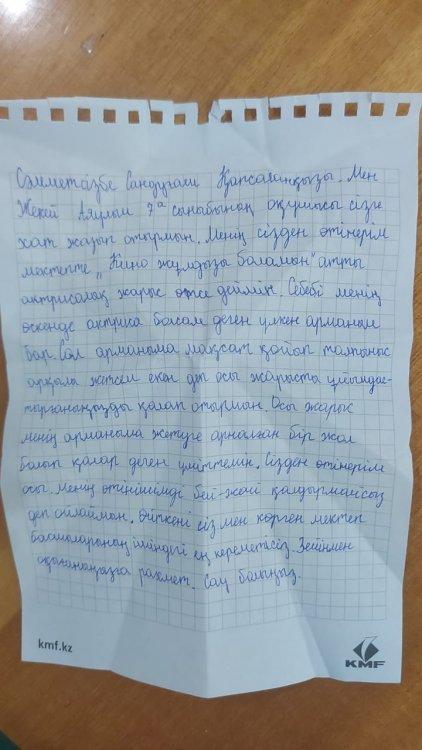 Сәлеметсізбе Сандуғаш Қапсаланқызы. Мен
Жекей Аяулым 7ᵃ сыныбының оқушысы сізге
хат жазып отырмын. Менің сізден өтінерім
мектепте „Кино жұлдызы боламын" атты
актрисалық жарыс өтсе деймін. Себебі менің
өскенде актриса болсам деген үлкен арманым
бар. Сол арманыма мақсат қойып талпыныс
арқылы жетсем екен деп осы жарысты ұйымдас-
тырғаныңызды қалап отырмын. Осы жарыс
менің арманыма жетуге арналған бір жол
болып қалар деген үміттемін. Сізден өтінерім
осы. Менің өтінішімді бей-жәй қалдырмайсыз
деп ойлаймын. Өйткені сіз мен көрген мектеп
басшыларының ішіндегі ең кереметісіз. Зейінмен
оқығаныңызға рахмет. Сау болыңыз.
kmf.kz
KMF